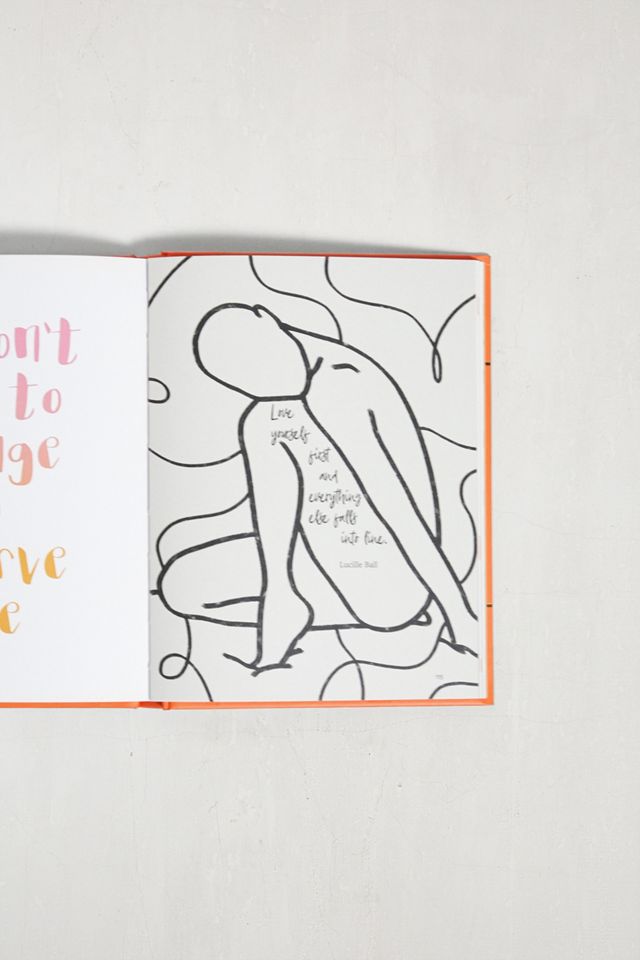 on't
to
ge
rve
e
Love
yourself
first
and
everything
else falls
into line.
Lucille Ball